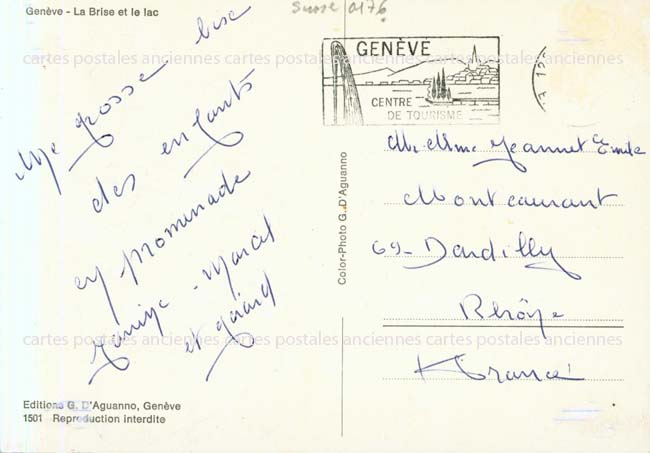 Genève - La Brise et le lac
Suisse 0176
GENÈVE
CENTRE
DE TOURISME
cartes postales anciennes cartes postales anciennes cartes postales anciennes
Une grosse bise
des enfants
en promenade
Janine - Marcel
et gérard
cartes postales anciennes cartes postales anciennes cartes postales anciennes
cartes postales anciennes cartes postales anciennes cartes postales anciennes
Editions G. D'Aguanno, Genève
1501 Reproduction interdite
Color-Photo G. D'Aguanno
Mr Mme Jeannet Emile
Montcourant
69 - Dardilly
Rhône
France